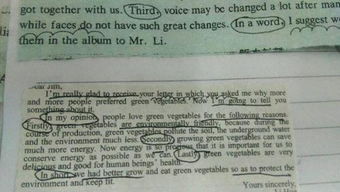 got together with us. Third, voice may be changed a lot after man
while faces do not have such great changes. In a word, I suggest w
them in the album to Mr. Li.
Jim,
I'm really glad to receive your letter in which you asked me why more
and more people preferred green vegetables. Now I'm going to tell you
something about it.
In my opinion, people love green vegetables for the following reasons.
Firstly, green vegetables are environmentally friendly, because during the
course of production, green vegetables pollute the soil, the underground water
and the environment much less. Secondly, growing green vegetables can save
much more energy. Now energy is so that it is important for us to
conserve energy as possible as we can. Lastly, green vegetables are very
delicious and good for human beings' health.
In short, we had better grow and eat green vegetables so as to protect the
environment and keep fit.
Yours sincerely,